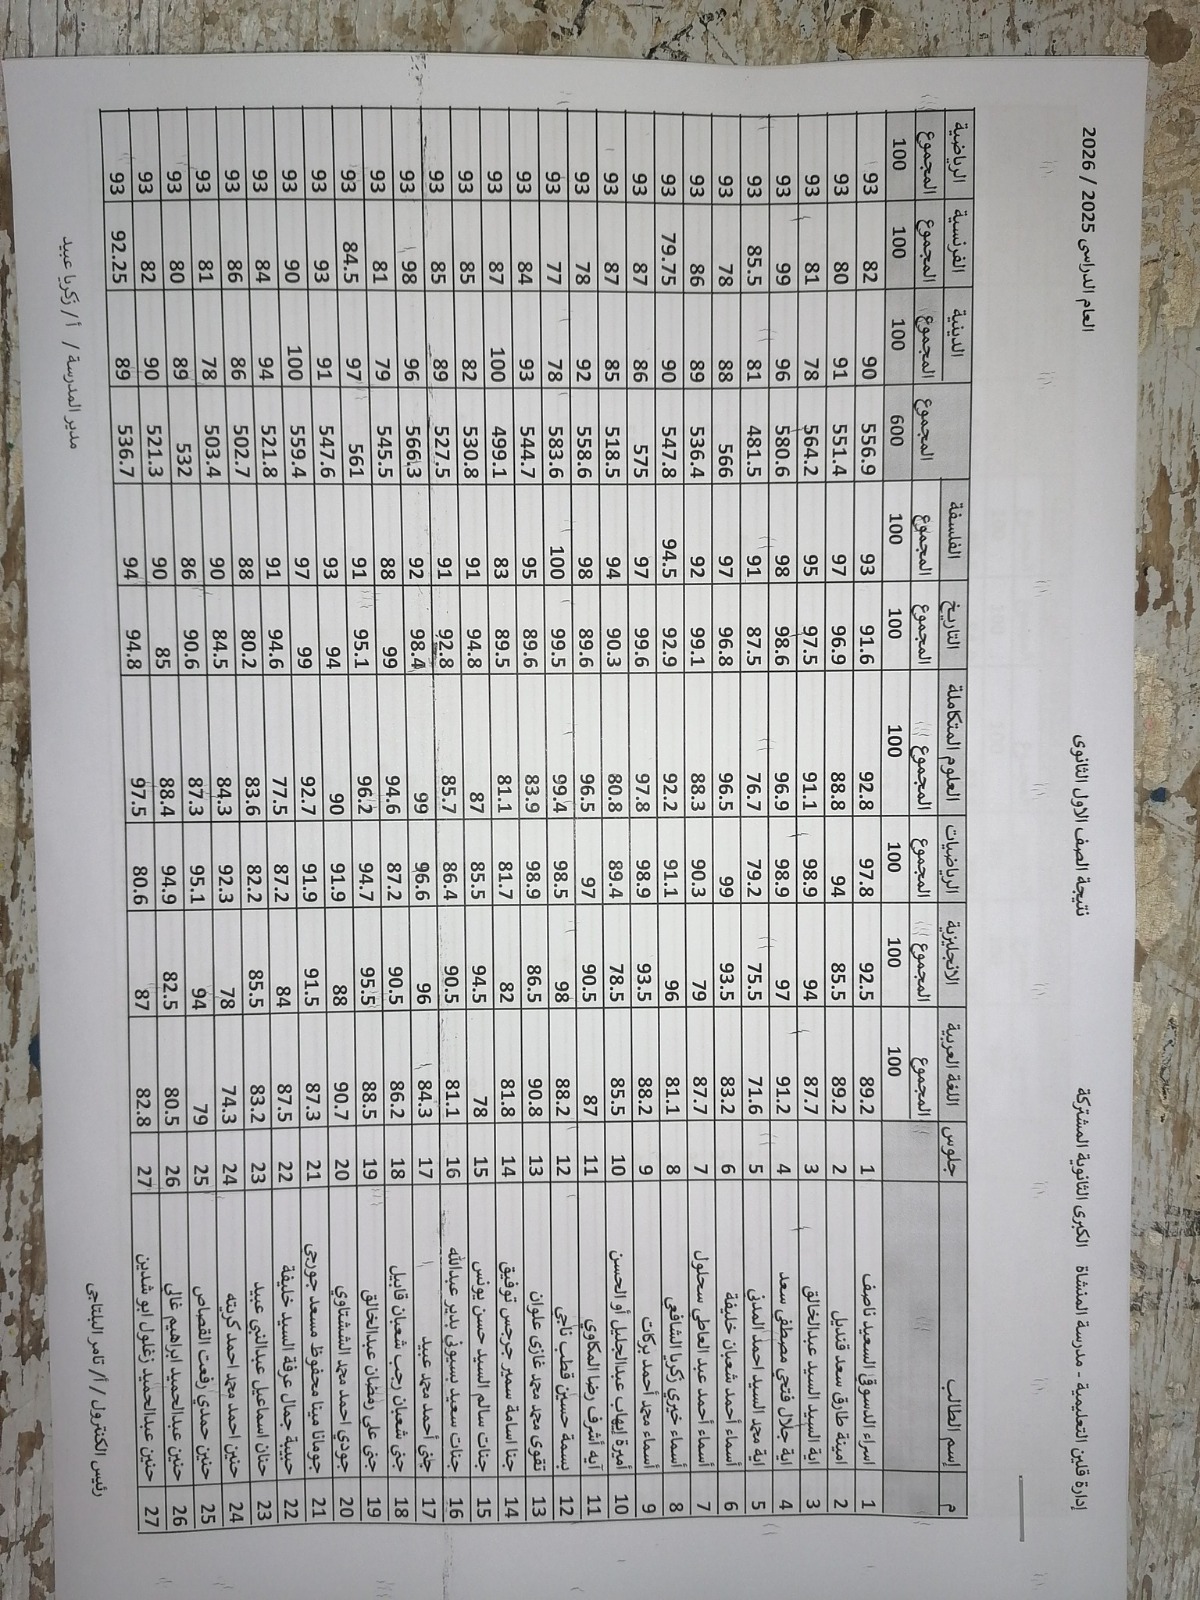 إدارة قلين التعليمية - مدرسة المنشاة الكبرى الثانوية المشتركة
نتيجة الصف الاول الثانوى
العام الدراسى 2025 / 2026
م إسم الطالب جلوس اللغة العربية الانجليزية الرياضيات العلوم المتكاملة التاريخ الفلسفة المجموع الدينية الفرنسية الرياضية
المجموع المجموع المجموع المجموع المجموع المجموع المجموع المجموع المجموع
100 100 100 100 100 100 600 100 100 100
1 اسراء الدسوقى السعيد ناصف 1 89.2 92.5 97.8 92.8 91.6 93 556.9 90 82 93
2 امينة طارق سعد قنديل 2 89.2 85.5 94 88.8 96.9 97 551.4 91 80 93
3 اية السيد السيد عبدالخالق 3 87.7 94 98.9 91.1 97.5 95 564.2 78 81 93
4 اية جلال فتحى مصطفى سعد 4 91.2 97 98.9 96.9 98.6 98 580.6 96 99 93
5 اية محمد السيد احمد المدنى 5 71.6 75.5 79.2 76.7 87.5 91 481.5 81 85.5 93
6 أسماء أحمد شعبان خليفة 6 83.2 93.5 99 96.5 96.8 97 566 88 78 93
7 أسماء أحمد عبد العاطي سحلول 7 87.7 79 90.3 88.3 99.1 92 536.4 89 86 93
8 أسماء خيري زكريا الشافعى 8 81.1 96 91.1 92.2 92.9 94.5 547.8 90 79.75 93
9 أسماء محمد أحمد بركات 9 88.2 93.5 98.9 97.8 99.6 97 575 86 87 93
10 أميرة إيهاب عبدالجليل أبو الحسن 10 85.5 78.5 89.4 80.8 90.3 94 518.5 85 87 93
11 آيه أشرف رضا المكاوي 11 87 90.5 97 96.5 89.6 98 558.6 92 78 93
12 بسمة حسين قطب ناجى 12 88.2 98 98.5 99.4 99.5 100 583.6 78 77 93
13 تقوى محمد غازى علوان 13 90.8 86.5 98.9 83.9 89.6 95 544.7 93 84 93
14 جنا اسامة سمير جرجس توفيق 14 81.8 82 81.7 81.1 89.5 83 499.1 100 87 93
15 جنات سالم السيد حسن يونس 15 78 94.5 85.5 87 94.8 91 530.8 82 85 93
16 جنات سعيد بسيونى بدير عبدالله 16 81.1 90.5 86.4 85.7 92.8 91 527.5 89 85 93
17 جنى أحمد محمد عبيد 17 84.3 96 96.6 99 98.4 92 566.3 96 98 93
18 جنى شعبان رجب شعبان قابيل 18 86.2 90.5 87.2 94.6 99 88 545.5 79 81 93
19 جنى على رمضان عبدالخالق 19 88.5 95.5 94.7 96.2 95.1 91 561 97 84.5 93
20 جودي احمد محمد الششتاوي 20 90.7 88 91.9 90 94 93 547.6 91 93 93
21 جومانا مينا محفوظ مسعد جورجى 21 87.3 91.5 91.9 92.7 99 97 559.4 100 90 93
22 حبيبة جمال عرفة السيد خليفة 22 87.5 84 87.2 77.5 94.6 91 521.8 94 84 93
23 حنان اسماعيل عبدالنبي عبيد 23 83.2 85.5 82.2 83.6 80.2 88 502.7 86 86 93
24 حنين احمد محمد احمد كريته 24 74.3 78 92.3 84.3 84.5 90 503.4 78 81 93
25 حنين حمدي رفعت القصاص 25 79 94 95.1 87.3 90.6 86 532 89 80 93
26 حنين عبدالحميد ابراهيم غالى 26 80.5 82.5 94.9 88.4 85 90 521.3 90 82 93
27 حنين عبدالحميد زغلول ابو شدين 27 82.8 87 80.6 97.5 94.8 94 536.7 89 92.25 93
رئيس الكنترول / أ/ تامر البلتاجى
مدير المدرسة / أ/ زكريا عبيد